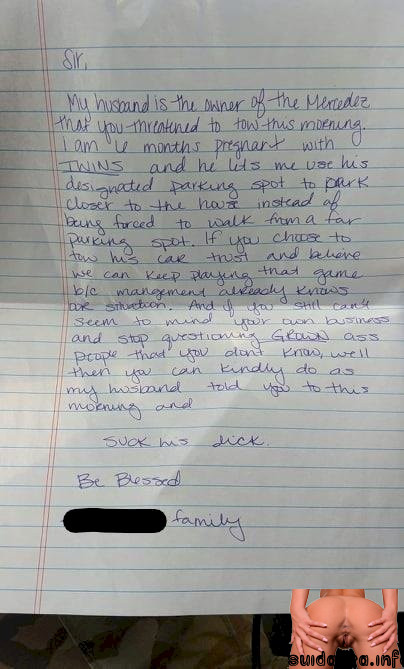 Sir,
My husband is the owner of the Mercedez
that you threatened to tow this morning.
I am 6 months pregnant with
TWINS and he lets me use his
designated parking spot to park
closer to the house instead of
being forced to walk from a far
parking spot. If you choose to
tow his car trust and believe
we can keep playing that game
b/c management already knows
our situation. And if you still can't
seem to mind your own business
and stop questioning GROWN ass
people that you don't know, we'll
then you can kindly do as
my husband told you to this
morning and
suck his dick.
Be Blessed
family